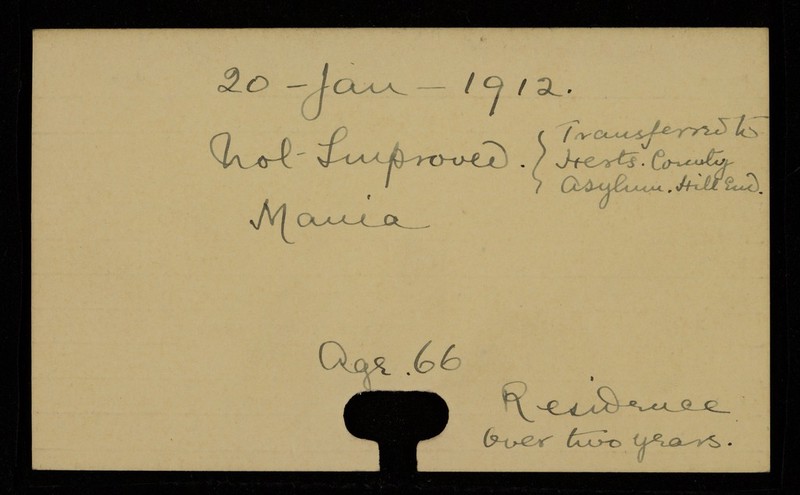 20 - Jan - 1912.
Not - Improved. { Transferred to
Herts. County
Asylum. Hill End.
Mania
Age. 66
Residence
over two years.